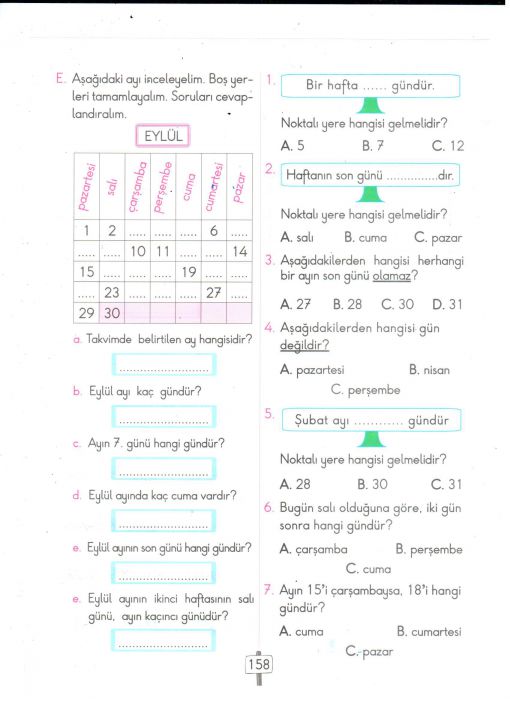 E. Aşağıdaki ayı inceleyelim. Boş yer-
leri tamamlayalım. Soruları cevap-
landıralım.
EYLÜL
pazartesi salı çarşamba perşembe cuma cumartesi pazar
1 2 ..... ..... ..... 6 .....
..... ..... 10 11 ..... ..... 14
15 ..... ..... ..... 19 ..... .....
..... 23 ..... ..... ..... 27 .....
29 30
a. Takvimde belirtilen ay hangisidir?
.........................
b. Eylül ayı kaç gündür?
.........................
c. Ayın 7. günü hangi gündür?
.........................
d. Eylül ayında kaç cuma vardır?
.........................
e. Eylül ayının son günü hangi gündür?
.........................
e. Eylül ayının ikinci haftasının salı
günü, ayın kaçıncı günüdür?
.........................
1. Bir hafta ...... gündür.
Noktalı yere hangisi gelmelidir?
A. 5 B. 7 C. 12
2. Haftanın son günü ..............dır.
Noktalı yere hangisi gelmelidir?
A. salı B. cuma C. pazar
3. Aşağıdakilerden hangisi herhangi
bir ayın son günü olamaz?
A. 27 B. 28 C. 30 D. 31
4. Aşağıdakilerden hangisi gün
değildir?
A. pazartesi B. nisan
C. perşembe
5. Şubat ayı ............ gündür
Noktalı yere hangisi gelmelidir?
A. 28 B. 30 C. 31
6. Bugün salı olduğuna göre, iki gün
sonra hangi gündür?
A. çarşamba B. perşembe
C. cuma
7. Ayın 15'i çarşambaysa, 18'i hangi
gündür?
A. cuma B. cumartesi
C. pazar
158